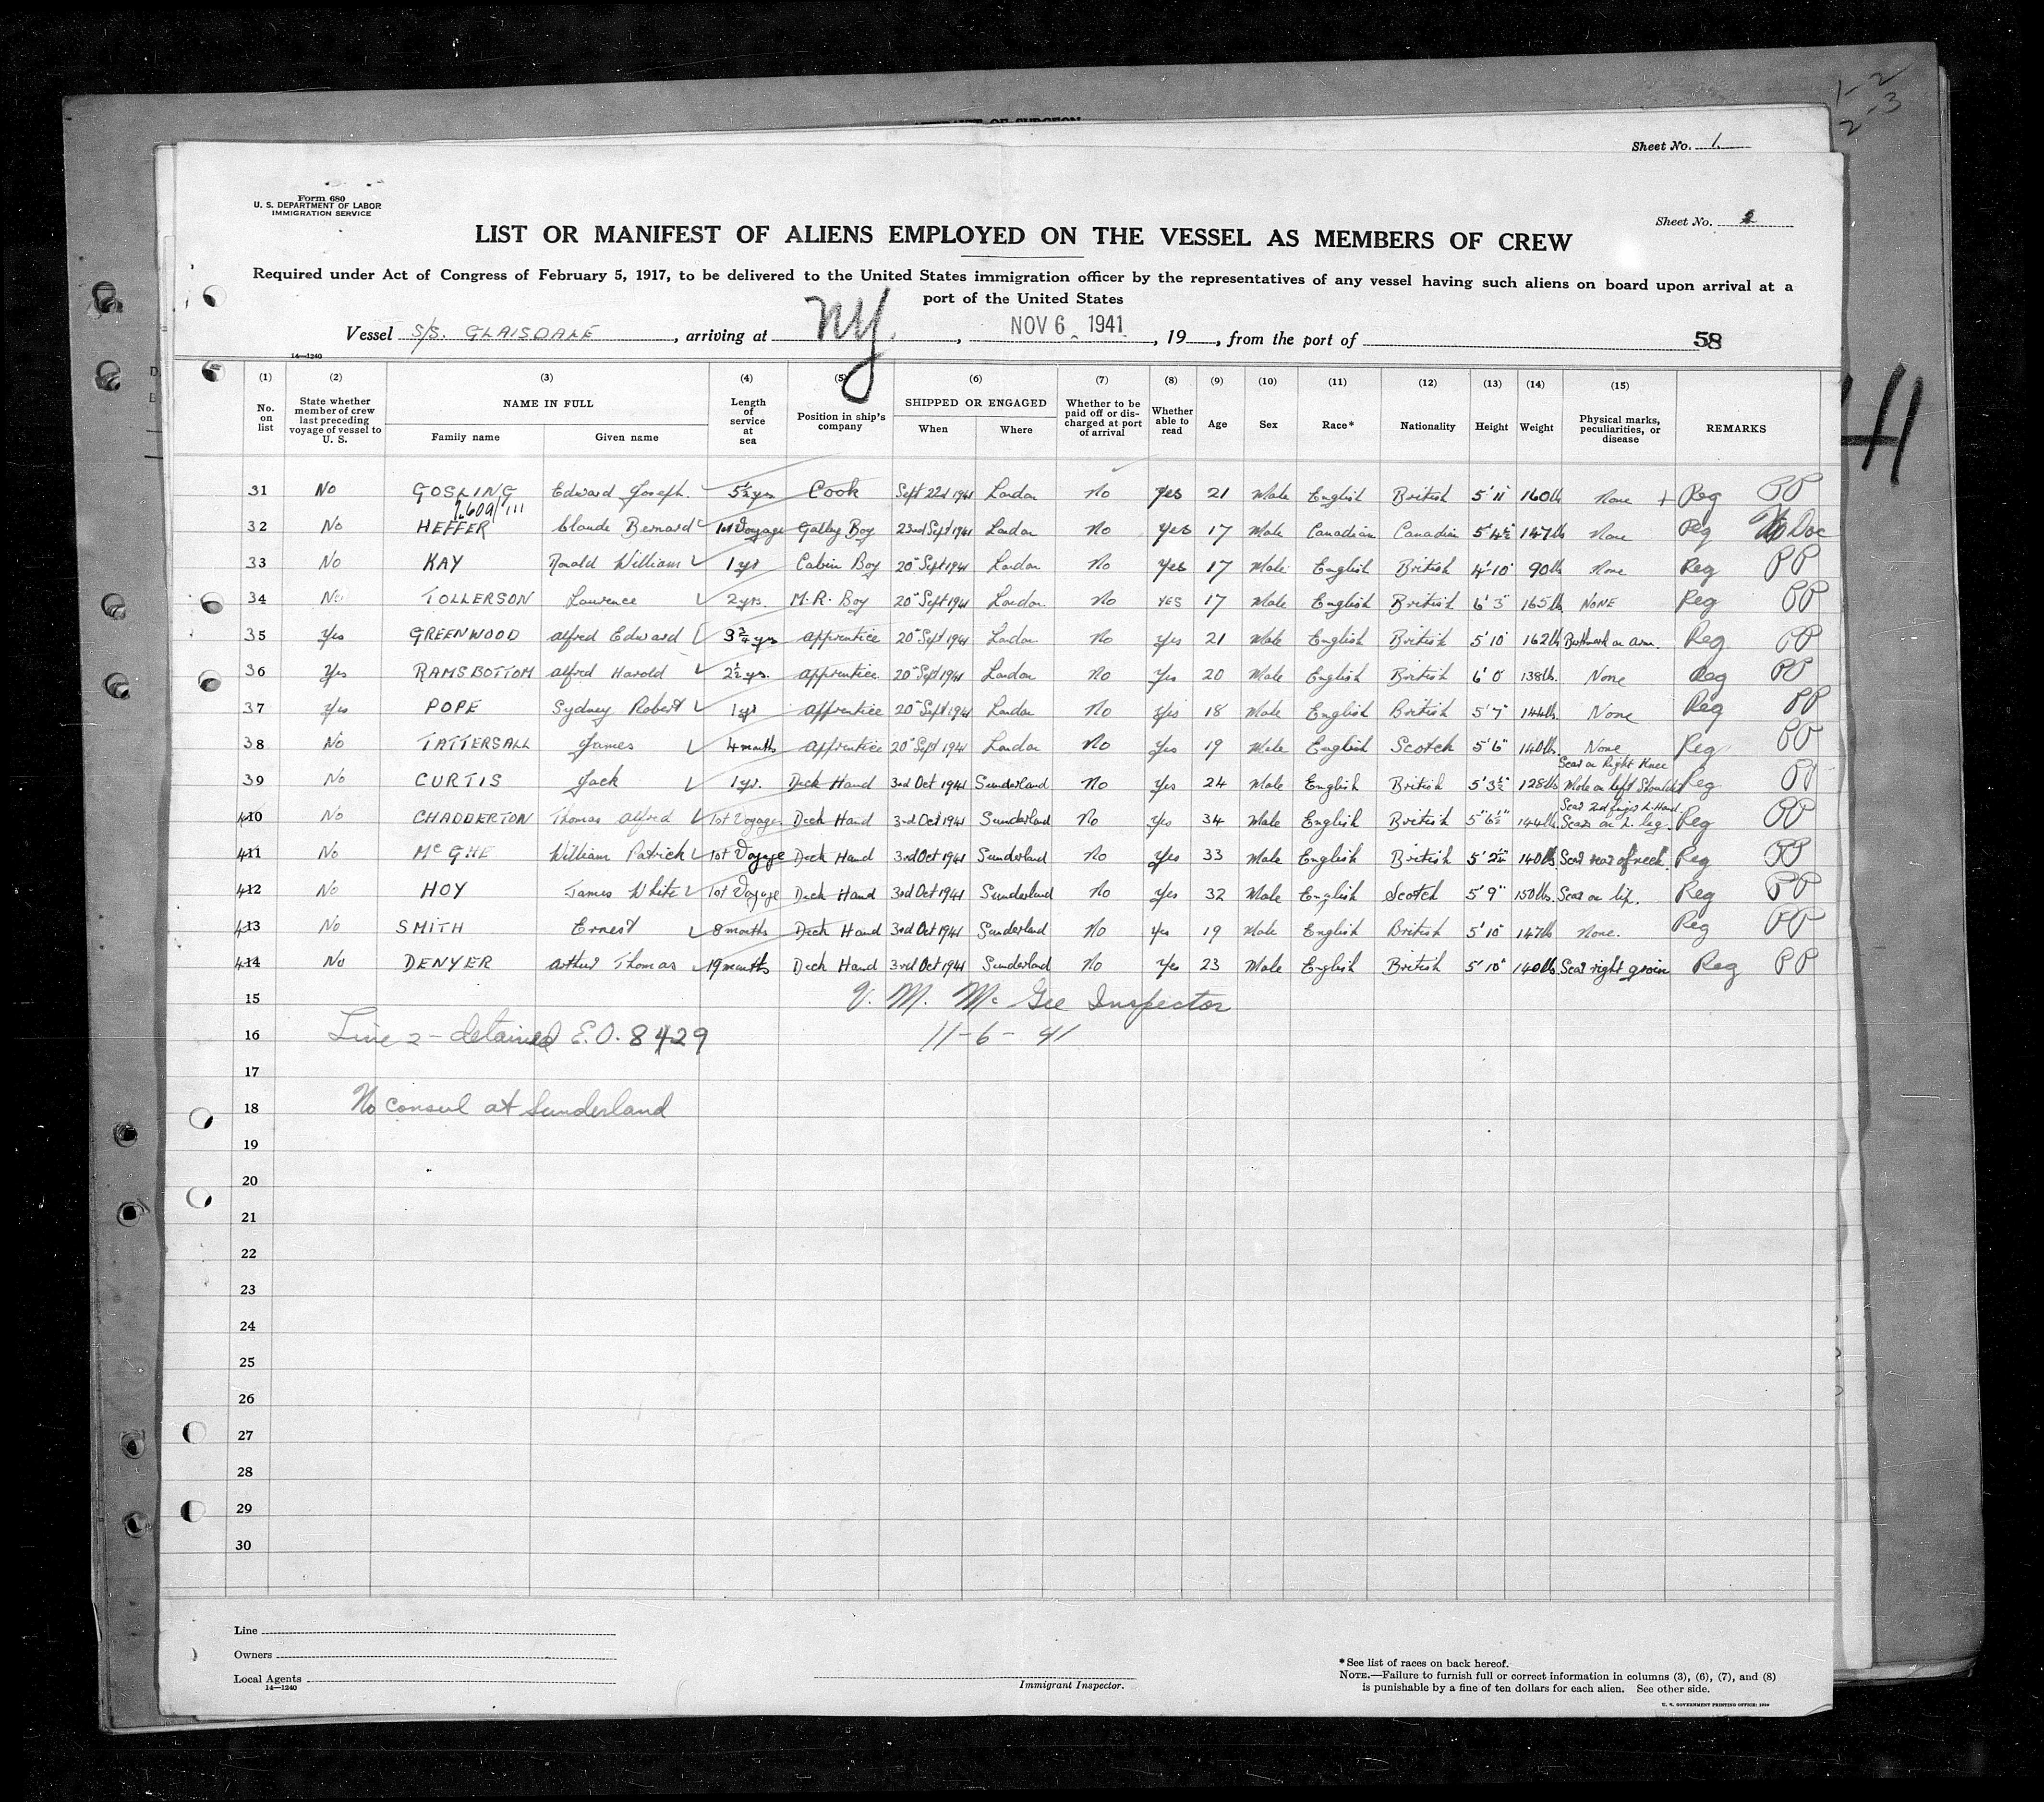 1-2
2-3
Sheet No. 1.
Form 680
U. S. DEPARTMENT OF LABOR
IMMIGRATION SERVICE
Sheet No.
LIST OR MANIFEST OF ALIENS EMPLOYED ON THE VESSEL AS MEMBERS OF CREW
Required under Act of Congress of February 5, 1917, to be delivered to the United States immigration officer by the representatives of any vessel having such aliens on board upon arrival at a
port of the United States
Vessel S/S. GLAISDALE, arriving at NY., NOV 6 1941, 19, from the port of 58
14—1240
(1) No. on list
(2) State whether member of crew last preceding voyage of vessel to U. S.
(3) NAME IN FULL Family name Given name
(4) Length of service at sea
(5) Position in ship's company
(6) SHIPPED OR ENGAGED When Where
(7) Whether to be paid off or discharged at port of arrival
(8) Whether able to read
(9) Age
(10) Sex
(11) Race*
(12) Nationality
(13) Height
(14) Weight
(15) Physical marks, peculiarities, or disease
REMARKS
31 No GOSLING Edward Joseph. 5½ yrs Cook Sept 22d 1941 London No Yes 21 Male English British 5'11" 160lb None + Reg PP
32 No HEFFER Claude Bernard 1st Voyage Galley Boy 22nd Sept 1941 London No Yes 17 Male Canadian Canadian 5'4½" 147lb None Reg No Doc
33 No KAY Ronald William 1 yr Cabin Boy 20" Sept 1941 London No Yes 17 Male English British 4'10" 90lb None Reg PP
34 No TOLLERSON Laurence 2 yrs. M.R. Boy 20" Sept 1941 London No YES 17 Male English British 6'3" 165lb NONE Reg PP
35 Yes GREENWOOD Alfred Edward 3¾ yrs Apprentice 20" Sept 1941 London No Yes 21 Male English British 5'10" 162lb Birthmark on arm. Reg PP
36 Yes RAMSBOTTOM Alfred Harold 2½ yrs. Apprentice 20" Sept 1941 London No Yes 20 Male English British 6'0" 138lb. None Reg PP
37 Yes POPE Sydney Robert 1 yr Apprentice 20" Sept 1941 London No Yes 18 Male English British 5'7" 144lb. None Reg PP
38 No TATTERSALL James 4 months Apprentice 20" Sept 1941 London No Yes 19 Male English Scotch 5'6" 140lb. None Reg PP
39 No CURTIS Jack 1 yr. Deck Hand 3rd Oct 1941 Sunderland No Yes 24 Male English British 5'3½" 128lb Scar on Right Knee Mole on left Shoulder Reg PP
10 No CHADDERTON Thomas Alfred 1st Voyage Deck Hand 3rd Oct 1941 Sunderland No Yes 34 Male English British 5'6½" 144lb. Scar 2nd finger L. Hand. Scars on L. leg. Reg PP
11 No McGHE William Patrick 1st Voyage Deck Hand 3rd Oct 1941 Sunderland No Yes 33 Male English British 5'2½" 140lb. Scar rear of neck. Reg PP
12 No HOY James White 1st Voyage Deck Hand 3rd Oct 1941 Sunderland No Yes 32 Male English Scotch 5'9" 150lbs. Scar on lip. Reg PP
13 No SMITH Ernest 8 months Deck Hand 3rd Oct 1941 Sunderland No Yes 19 Male English British 5'10" 147lb None. Reg PP
14 No DENYER Arthur Thomas 19 months Deck Hand 3rd Oct 1941 Sunderland No Yes 23 Male English British 5'10" 140lb. Scar right groin Reg PP
15 V. M. McGee Inspector
16 Line 2 - detained E.O. 8429 11-6-41
17
18 No consul at Sunderland
19
20
21
22
23
24
25
26
27
28
29
30
Line
Owners
Local Agents
14—1240
Immigrant Inspector.
*See list of races on back hereof.
NOTE.—Failure to furnish full or correct information in columns (3), (6), (7), and (8)
is punishable by a fine of ten dollars for each alien. See other side.